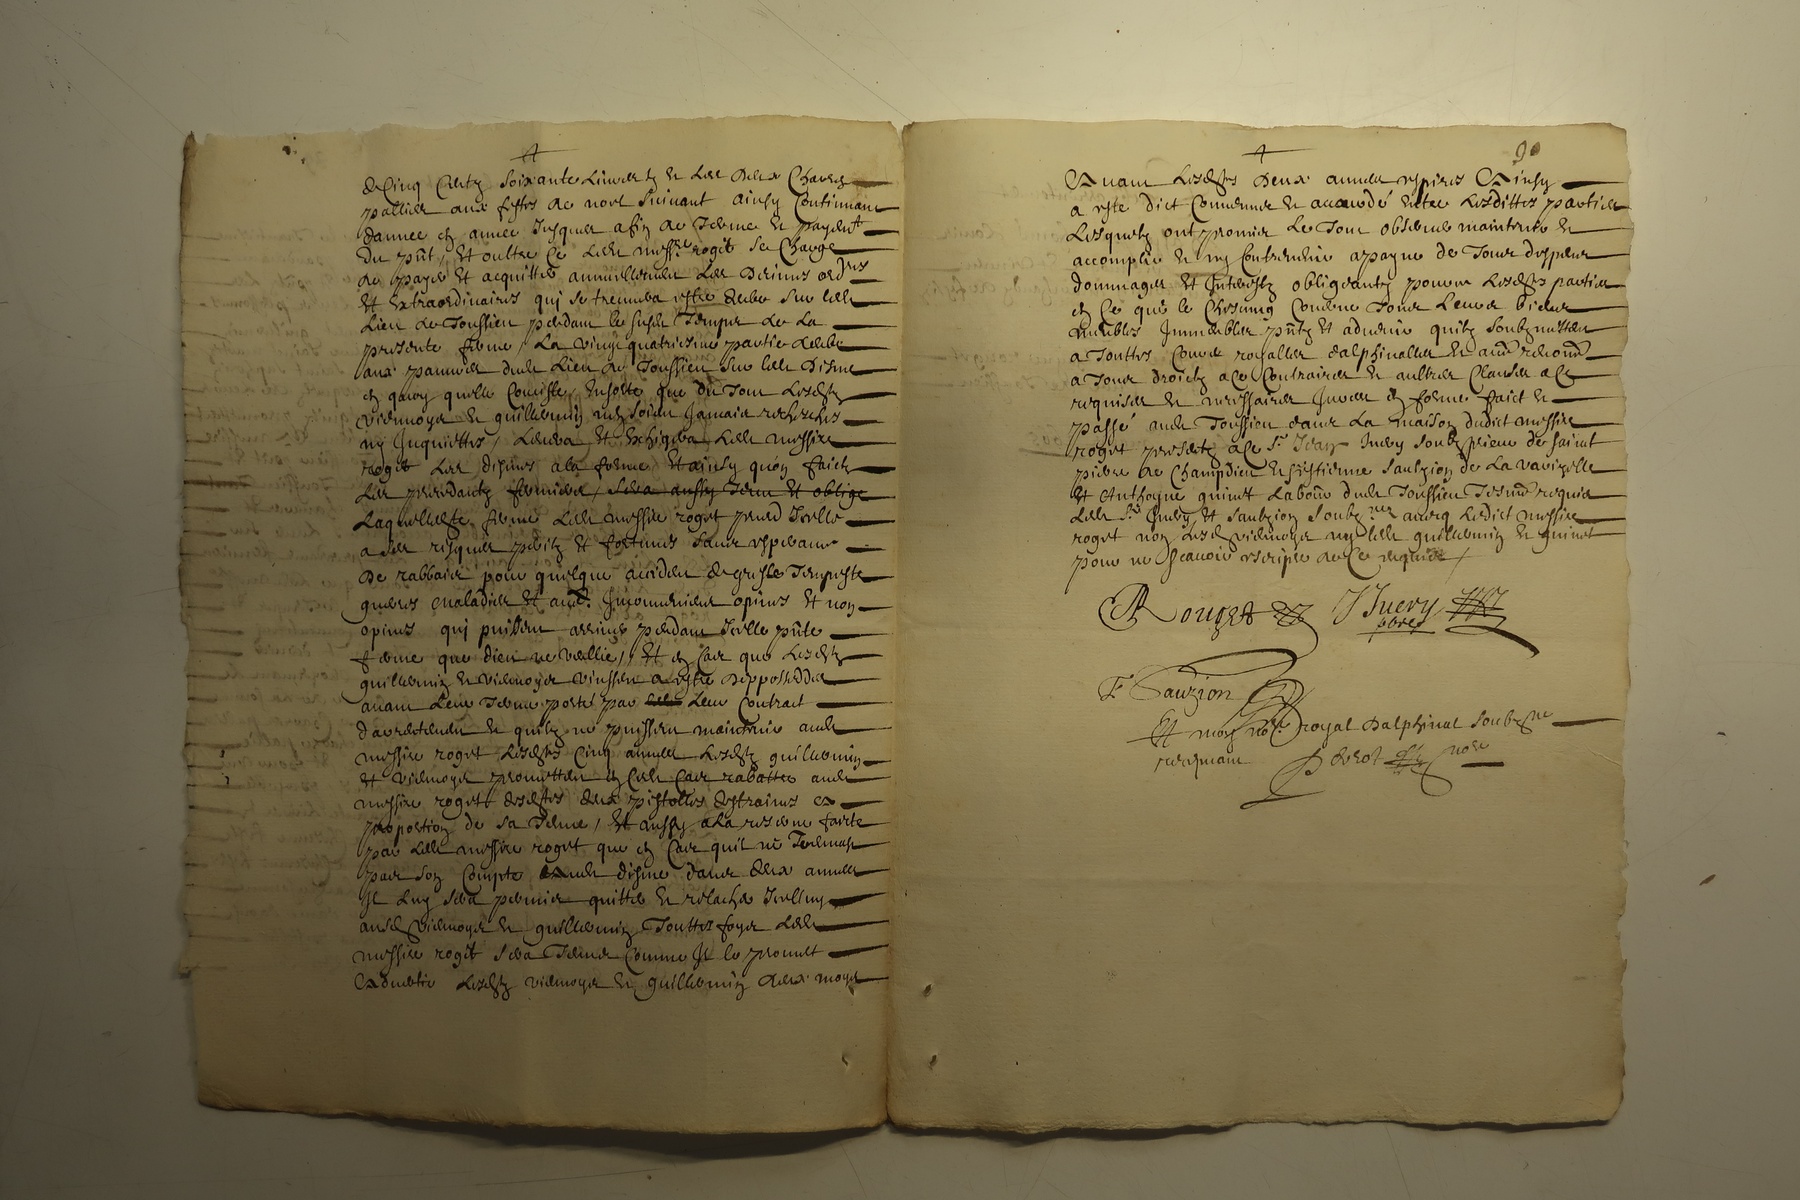 de Cinq Centz soixante Livres tz et les deux Charges
paillies aux festes de noel suivant ainsy Continuant
d'annee en annee Jusques a fin de Terme et payemt
du pnt, Et oultre Ce ledt messire roget se Charge
de payer Et acquitter annuellement les decimes ordres
Et Extraordinaires qui se treuvera estre deubz sur ledt
Lieu de Toussieu pendant le susdt Temps de La
presente ferme, La vingt quatriesme partie deube
aux pauvres dudt Lieu de Toussieu sur ledt Disme
en quoy quelle Consiste, Ensorte que du Tout Lesdts
viennoys et guillermin nen soient Jamais recherches
ny Inquiettes, Levera Et Exhigera Ledt messire
roget Les dismes a la forme Et ainsy quon faict
Les precedantz fermiers, sera aussy Tenu Et oblige
Laquelle dte ferme Ledt messire roget prend Icelle
a ses risques perilz Et fortunes sans esperance
De rabbais pour quelque accident de gresle Tempeste
gueres maladies Et aues Inconvenients opines Et non
opines qui puissent arriver pendant Icelle pnte
ferme que dieu ne veullie, Et en Cas que Lesdts
guillermin et viennoys vinssent a estre Depposseddes
avant Leur Terme porte par Leur Contrait
d'arrentement et quilz ne puissent maintenir audt
messire roget Lesdtes Cinq annees Lesdts guillermin
et viennoys promettent en Cedt Cas rabattre audt
messire roget desdtes deux pistolles destraines a
proportion de sa Tenue, Et aussy a La reserve faicte
par Ledt messire roget que en Cas quil ne Treuvast
pas son Compte audt disme dans deux annees
Il Luy sera permis quitter et relacher Icelluy
ausd viennoys et guillermin Touttes foys Ledt
messire roget sera Tenu Comme Il le promet
advertir Lesdts viennoys et guillermin deux moys
90
Avant Lesdtes Deux annees expirees Ainsy
a este dict Convenu et accordé entre Lesdittes parties
Lesquelz ont promis Le Tout observer maintenir et
accomplir et ny Contrevenir a payne de Tous despens
dommages Et Interestz obligeantz pour ce Lesdtes parties
en Ce que le Chascung Concerne Tous Leurs biens
meubles Immeubles pntz Et advenir quilz soubzmettent
a Touttes Cours royalles dalphinalles et aues renonct
a Tous droictz a Ce Contraires et aultres Clauses a Ce
requises et necessaires Jurees en forme faict et
passé audt Toussieu dans La maison dudict messire
roget presentz a Ce Sr Jean Juery soubz prieur de saint
pierre de Champdieu et estienne sauzion de La
Et Anthoyne quinet Labour dudt Toussieu Tesms requis
Ledt Sr Juery Et sauzion soubznez avecq Ledict messire
roget non Lesd viennoys ny ledt guillermin et quinet
pour ne scavoir escripre de Ce requis
Rouget J Juery
pbre
F Sauzion
Et moy notre royal Dalphinal soubzne
recepvant nore